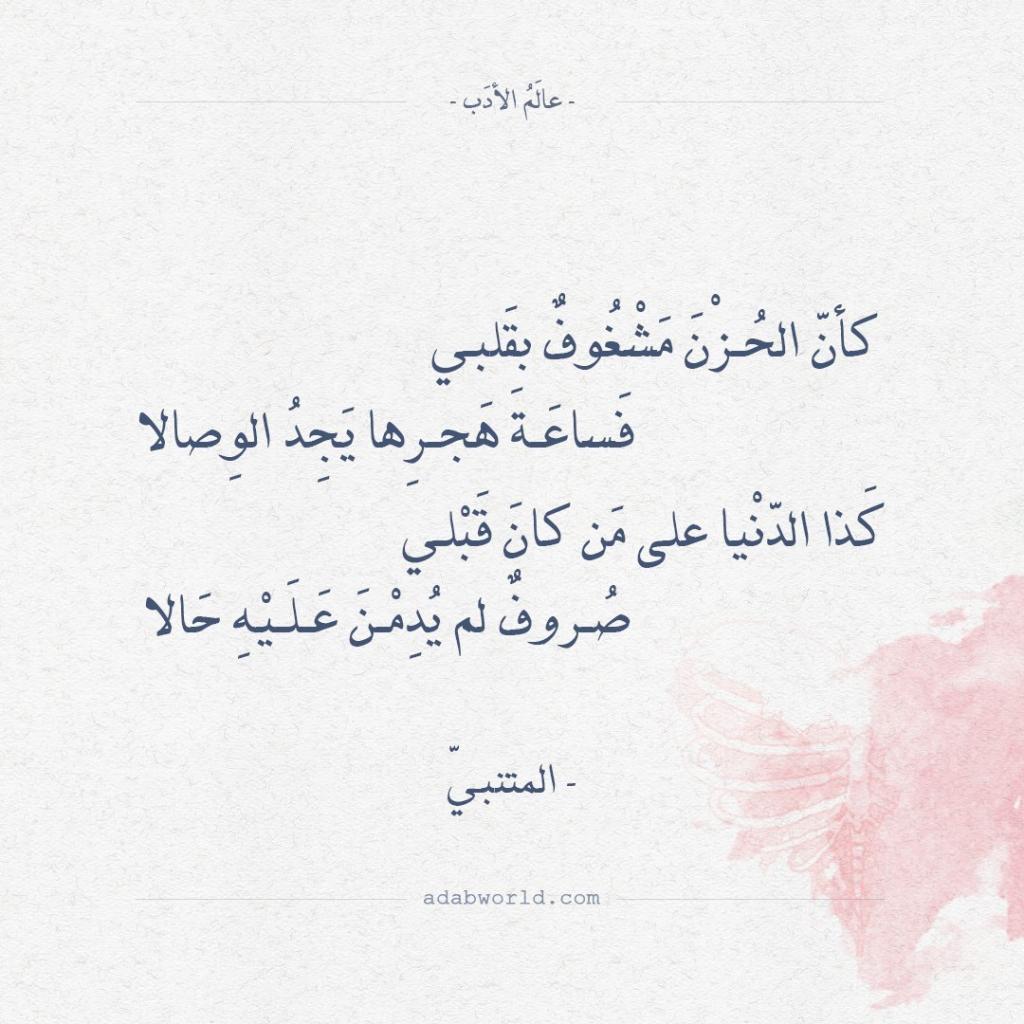 - عالَمُ الأدَب -
كأنّ الحُـزْنَ مَشْغُوفٌ بقَلبـي
فَساعَـةَ هَجـرِها يَجِدُ الوِصالا
كَذا الدّنْيا علـى مَن كانَ قَبْلـي
صُـروفٌ لم يُدِمْـنَ عَـلَـيْهِ حَالا
- المتنبـيّ
adabworld.com